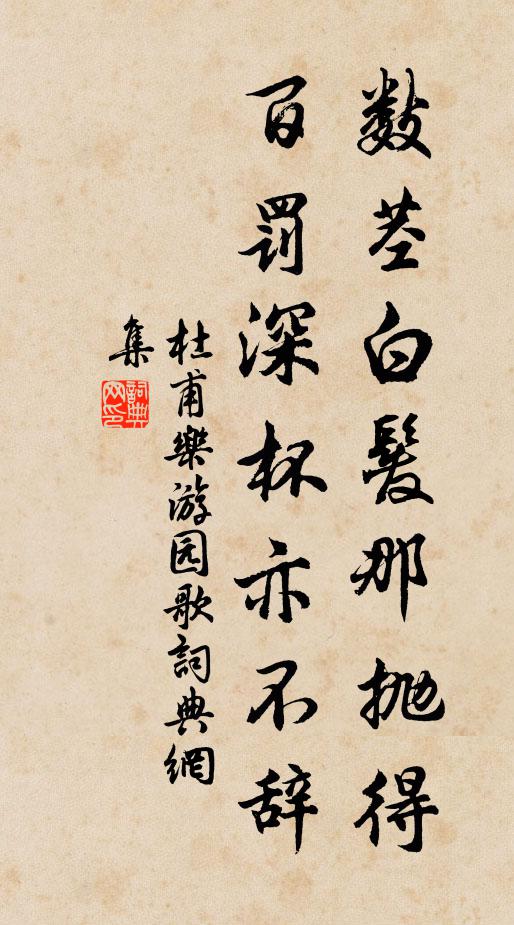 数茎白髮那抛得
百罰深杯亦不辞
杜甫樂游园歌詞典網
集
詞典網印